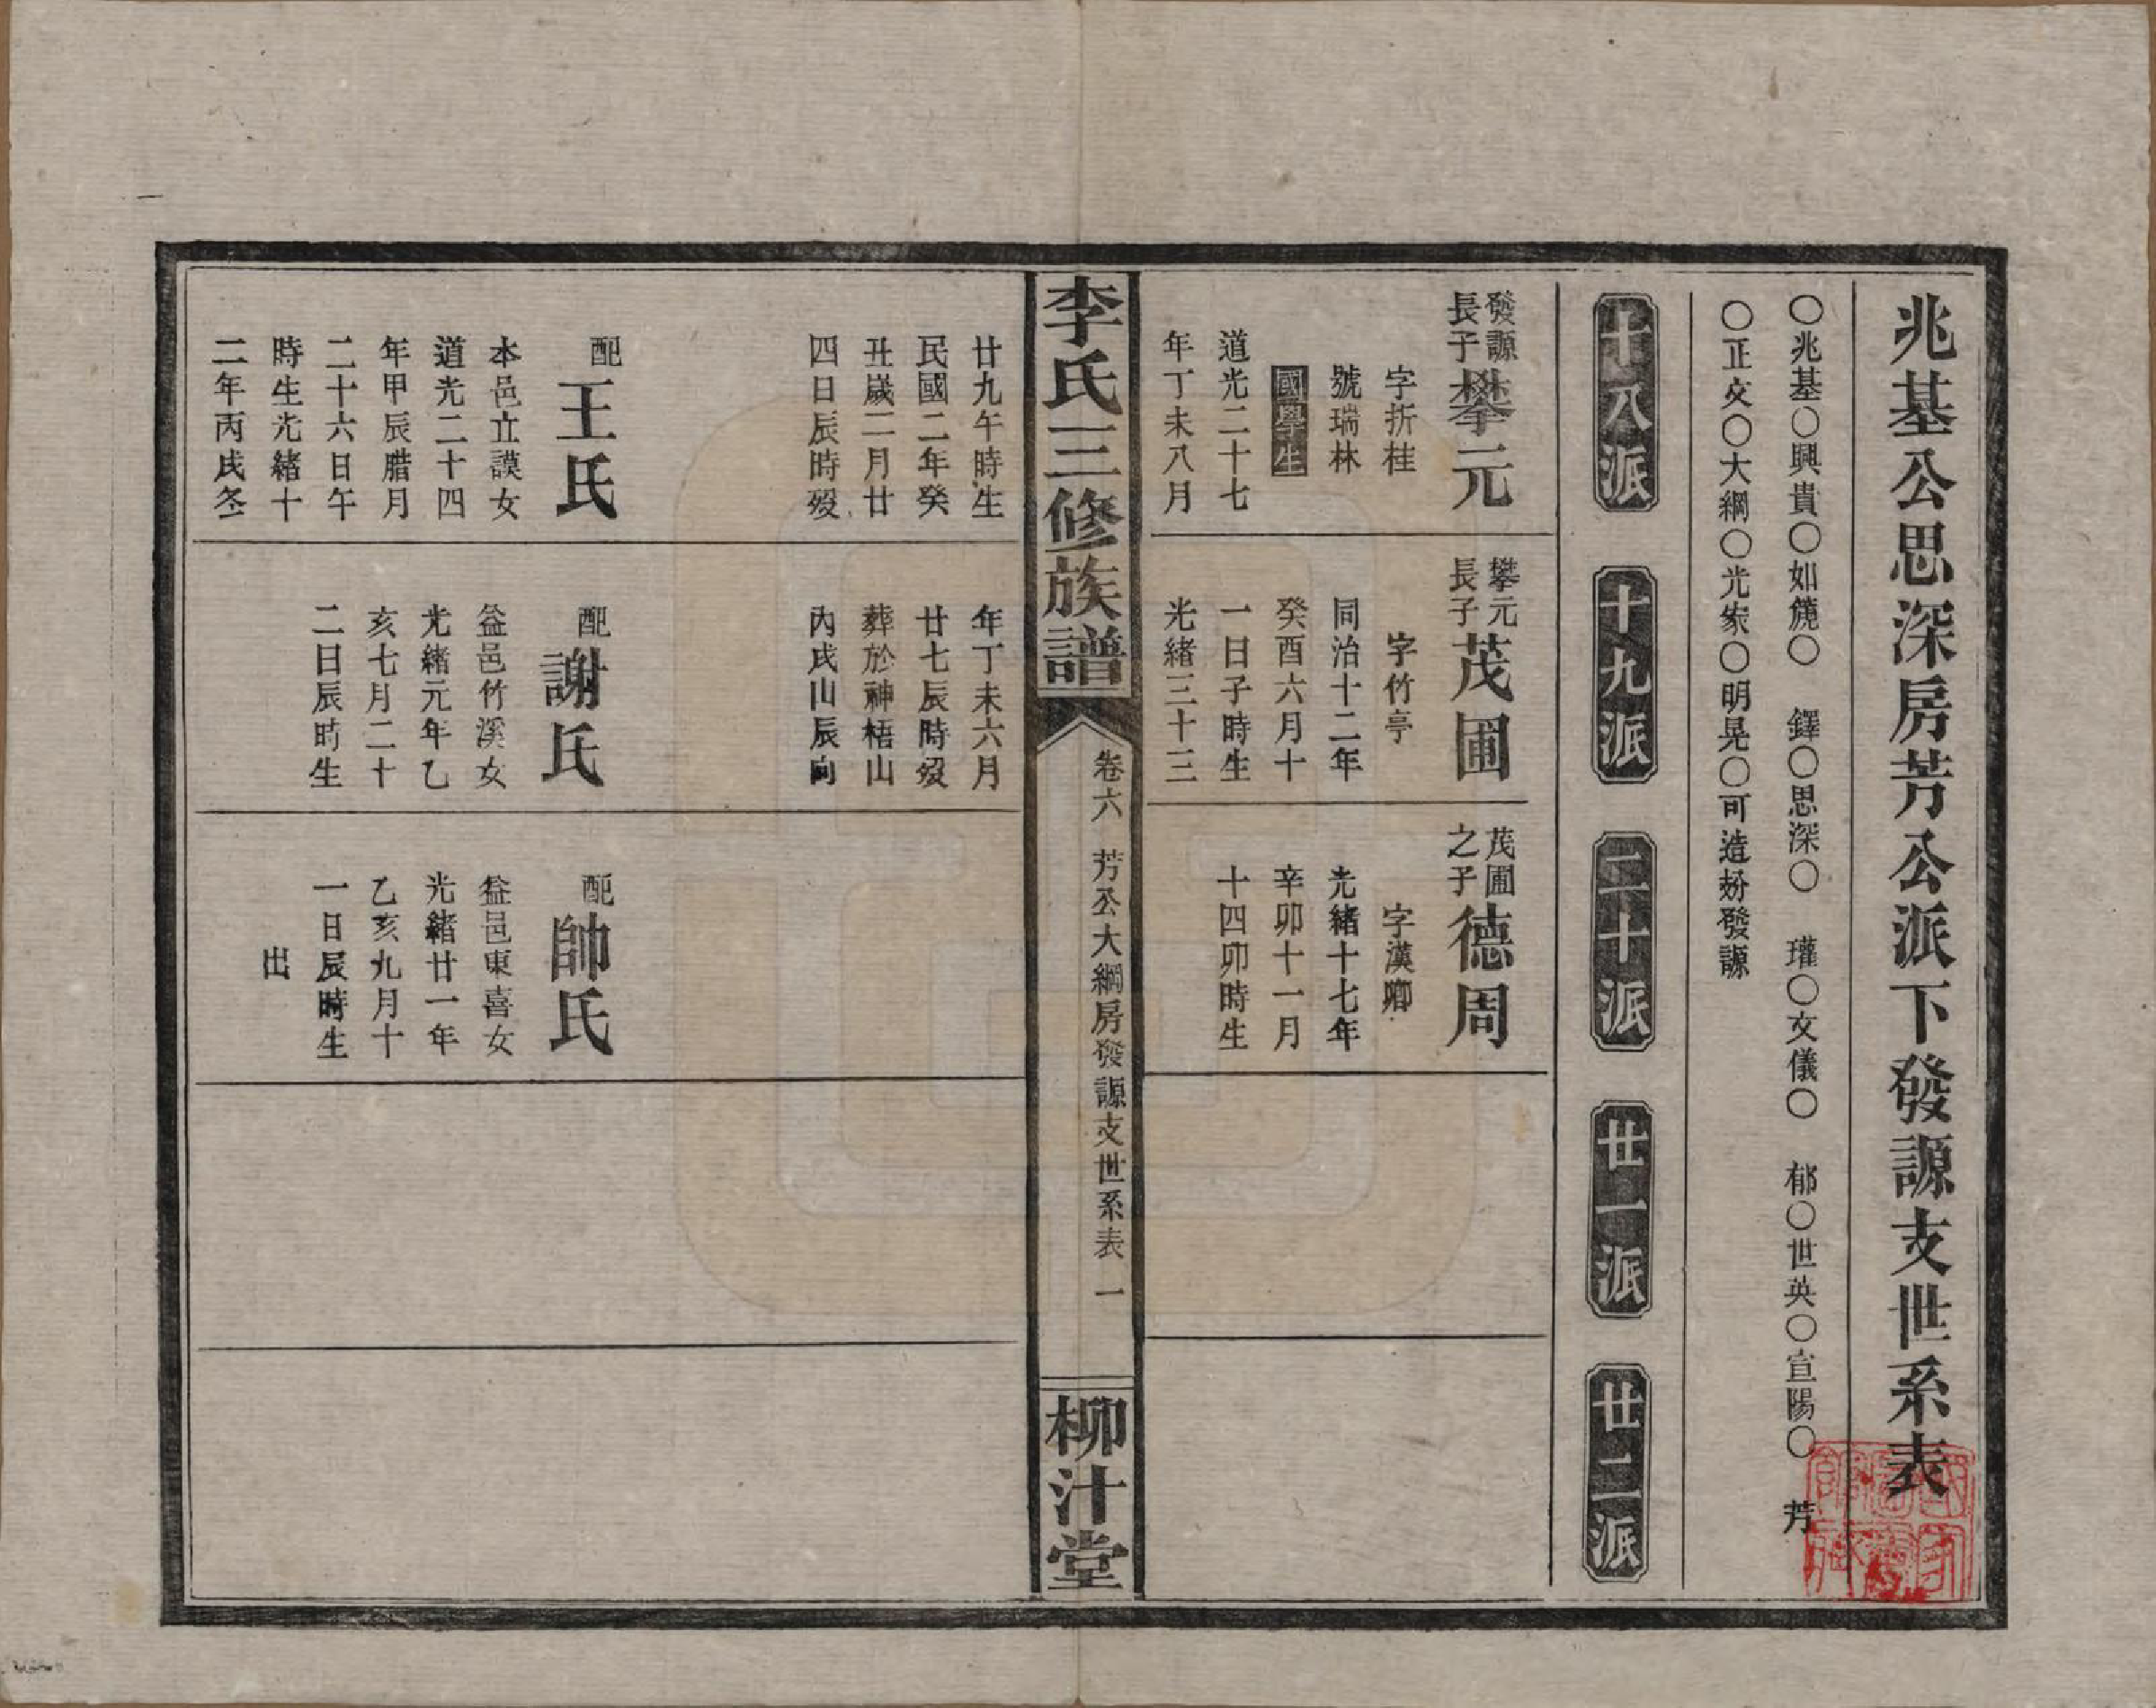 兆基公思深房芳公派下發源支世系表
〇兆基〇興貴〇如簏〇　鐸〇思深〇　瓘〇文儀〇　郁〇世英〇宣陽〇　芳
〇正文〇大綱〇光家〇明晃〇可造
發源
十八派
十九派
二十派
廿一派
廿二派
發源長子攀元
字折桂
號瑞林
國學生
道光二十七
年丁未八月
廿九午時生
民國二年癸
丑歲二月廿
四日辰時歿
配王氏
本邑立謨女
道光二十四
年甲辰腊月
二十六日午
時生光緒十
二年丙戌冬
攀元長子茂圃
字竹亭
同治十二年
癸酉六月十
一日子時生
光緒三十三
年丁未六月
廿七辰時歿
葬於神梧山
內戌山辰向
配謝氏
益邑竹溪女
光緒元年乙
亥七月二十
二日辰時生
茂圃之子德周
字漢卿
光緒十七年
辛卯十一月
十四卯時生
配帥氏
益邑東喜女
光緒廿一年
乙亥九月十
一日辰時生
出
李氏三修族譜
卷六　芳公大綱房發源支世系表　一
柳汁堂